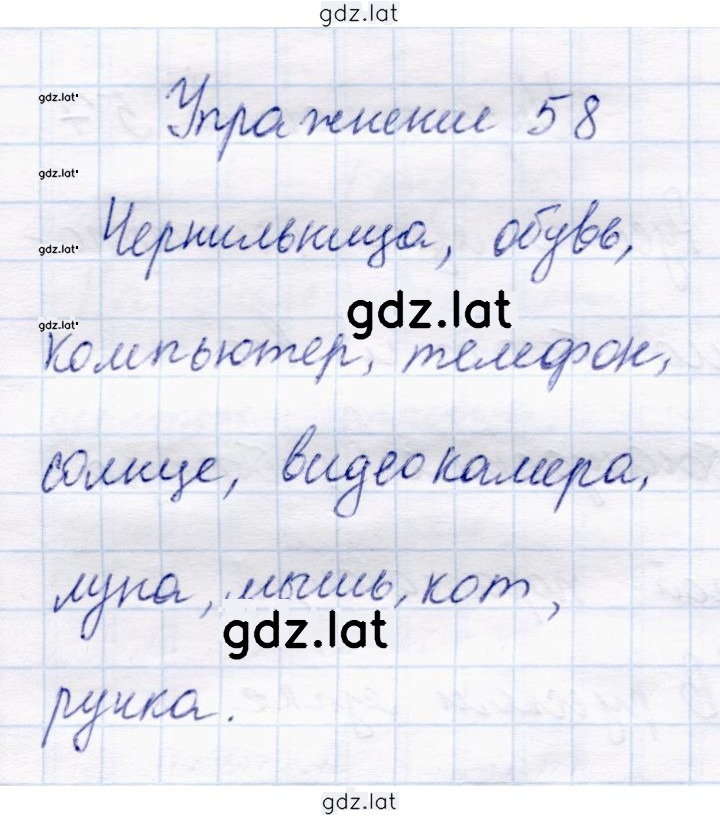 gdz.lat
gdz.lat
Упражнение 58
gdz.lat
Чернильница, обувь,
gdz.lat
gdz.lat
gdz.lat
компьютер, телефон,
солнце, видеокамера,
луна, мышь, кот,
gdz.lat
ручка.
gdz.lat